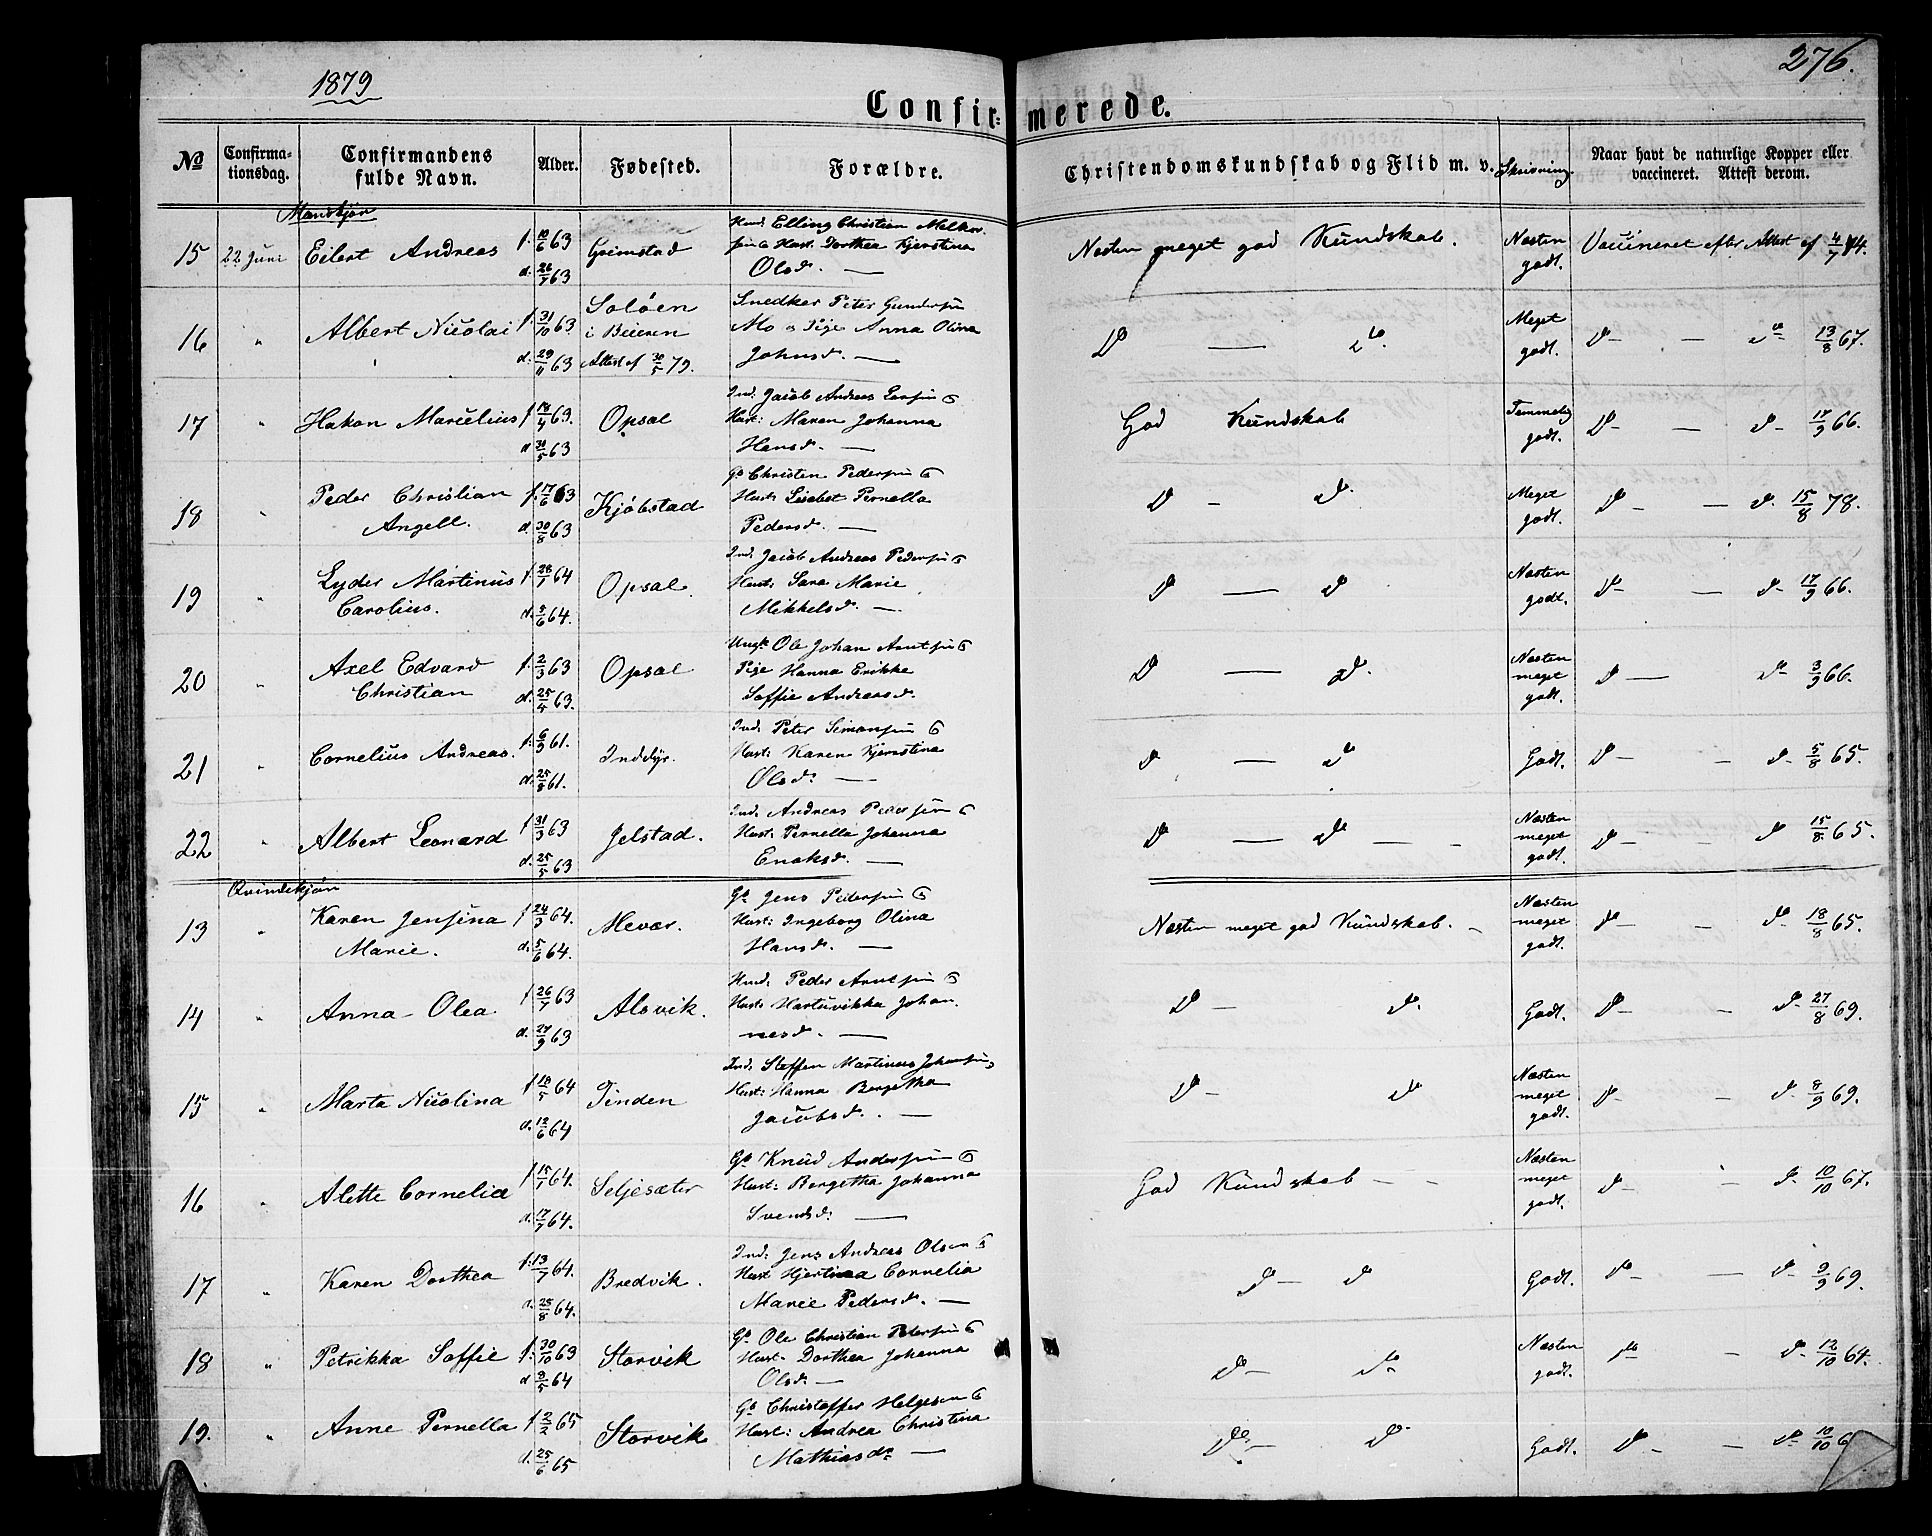 1879
276.
Confirmerede.
No
Confirmationsdag.
Confirmandens fulde Navn.
Alder.
Fødested.
Forældre.
Christendomskundskab og Flid m. v.
Skrivning.
Naar havt de naturlige Kopper eller vaccineret. Attest derom.
Mandkjøn
15 22 Juni Eilert Andreas f. 10/6 63 d. 26/7 63 Grimstad
Elling Christian Melkor-
sen & Hust. Dorthea Kjerstina
Olsd. —
Nesten meget god Kundskab. Næsten godt. Vaccineret efter Attest af 4/7 74.
16 " Albert Nicolai f. 31/10 63. d. 29/11 63 Soløen i Beieren Attest af 30/5 79.
Snedker Peter Gundersen
Mo & Pige Anna Olina
Johnsd. —
Do — do. Meget godt. Do — do 13/8 67.
17 " Hakon Marcelius f. 14/4 63. d. 30/5 63 Opsal
Ind. Jacob Andreas &
Hust: Maren Johanna
Hansd. —
God Kundskab Temmelig godt. Do — do 17/9 66.
18 " Peder Christian Angell. f. 17/6 63 d. 30/8 63 Kjøbstad
Gb Christen Pedersen &
Hust: Lisebet Pernella
Pedersd. —
Do — do. Meget godt. Do — do. 15/8 78.
19 " Lyder Martinus Carolius. f. 28/1 64 d. 5/6 64. Opsal.
Ind. Jacob Andreas Pedersen &
Hust: Sara Marie
Mikkelsd. —
Do — do Næsten godt. Do — do 17/9 66.
20 " Axel Edvard Christian f. 2/3 63 d. 25/5 63. Opsal
Ungk. Ole Johan Arntsen &
Pige Hanna Erikke
Soffie Andreasd.
Do — do. Næsten meget godt. Do — do 3/9 66.
21 " Cornelius Andreas. f. 6/3 61. d. 25/8 61. Inddyr.
Ind. Peter Simonsen &
Hust: Karen Kjerstina
Olsd. —
Do — do Godt. Do — do 5/8 65.
22 " Albert Leonard f. 31/3 63 d. 25/5 63 Jelstad.
Ind. Andreas Pedersen &
Hust: Pernella Johanna
Enoksd. —
Do — do — Næsten meget godt. Do — do 15/8 65.
Qvindekjøn
13 " Karen Jensina Marie. f. 24/3 64. d. 5/6 64. Mevær.
Gb Jens Pedersen &
Hust: Ingeborg Olina
Hansd. —
Næsten meget god Kundskab. — Næsten meget godt. Do — do 18/8 65.
14 " Anna Olea. f. 26/7 63 d. 27/9 63 Alsvik.
Hmd. Peder Arntsen &
Hust: Hartvikka Johan-
nesd. —
Do — do. Godt. Do — do 27/8 69.
15 " Marta Nicolina f. 10/5 64 d. 12/6 64 Tinden
Ind. Steffen Martinus Johansen &
Hust: Hanna Bergetha
Jacobsd. —
Do — do Næsten meget godt. Do — do 8/9 69.
16 " Alette Cornelia f. 15/1 64. d. 17/7 64. Seljesæter
Gb Knud Andersen &
Hust: Bergetha Johanna
Svendsd. —
God Kundskab — Næsten meget godt. Do — do 10/10 67.
17 " Karen Dorthea f. 13/7 64. d. 25/8 64. Bredvik.
Ind: Jens Andreas Olsen &
Hust Hjertina Cornelia
Marie Pedersd. —
Do — do Godt. Do — do 9/9 69.
18 " Petrikka Soffie f. 30/10 63 d. 8/5 64 Storvik
Gb Ole Christian Petersen &
Hust. Dorthea Johanna
Olsd. —
Do — do Næsten godt. Do — do 12/10 64.
19. " Anne Pernella f. 2/2 65 d. 25/6 65 Storvik
Gb Christoffer Helgesen &
Hust: Andrea Christina
Mathiasdr. —
Do — do. Godt. Do — do 10/10 6